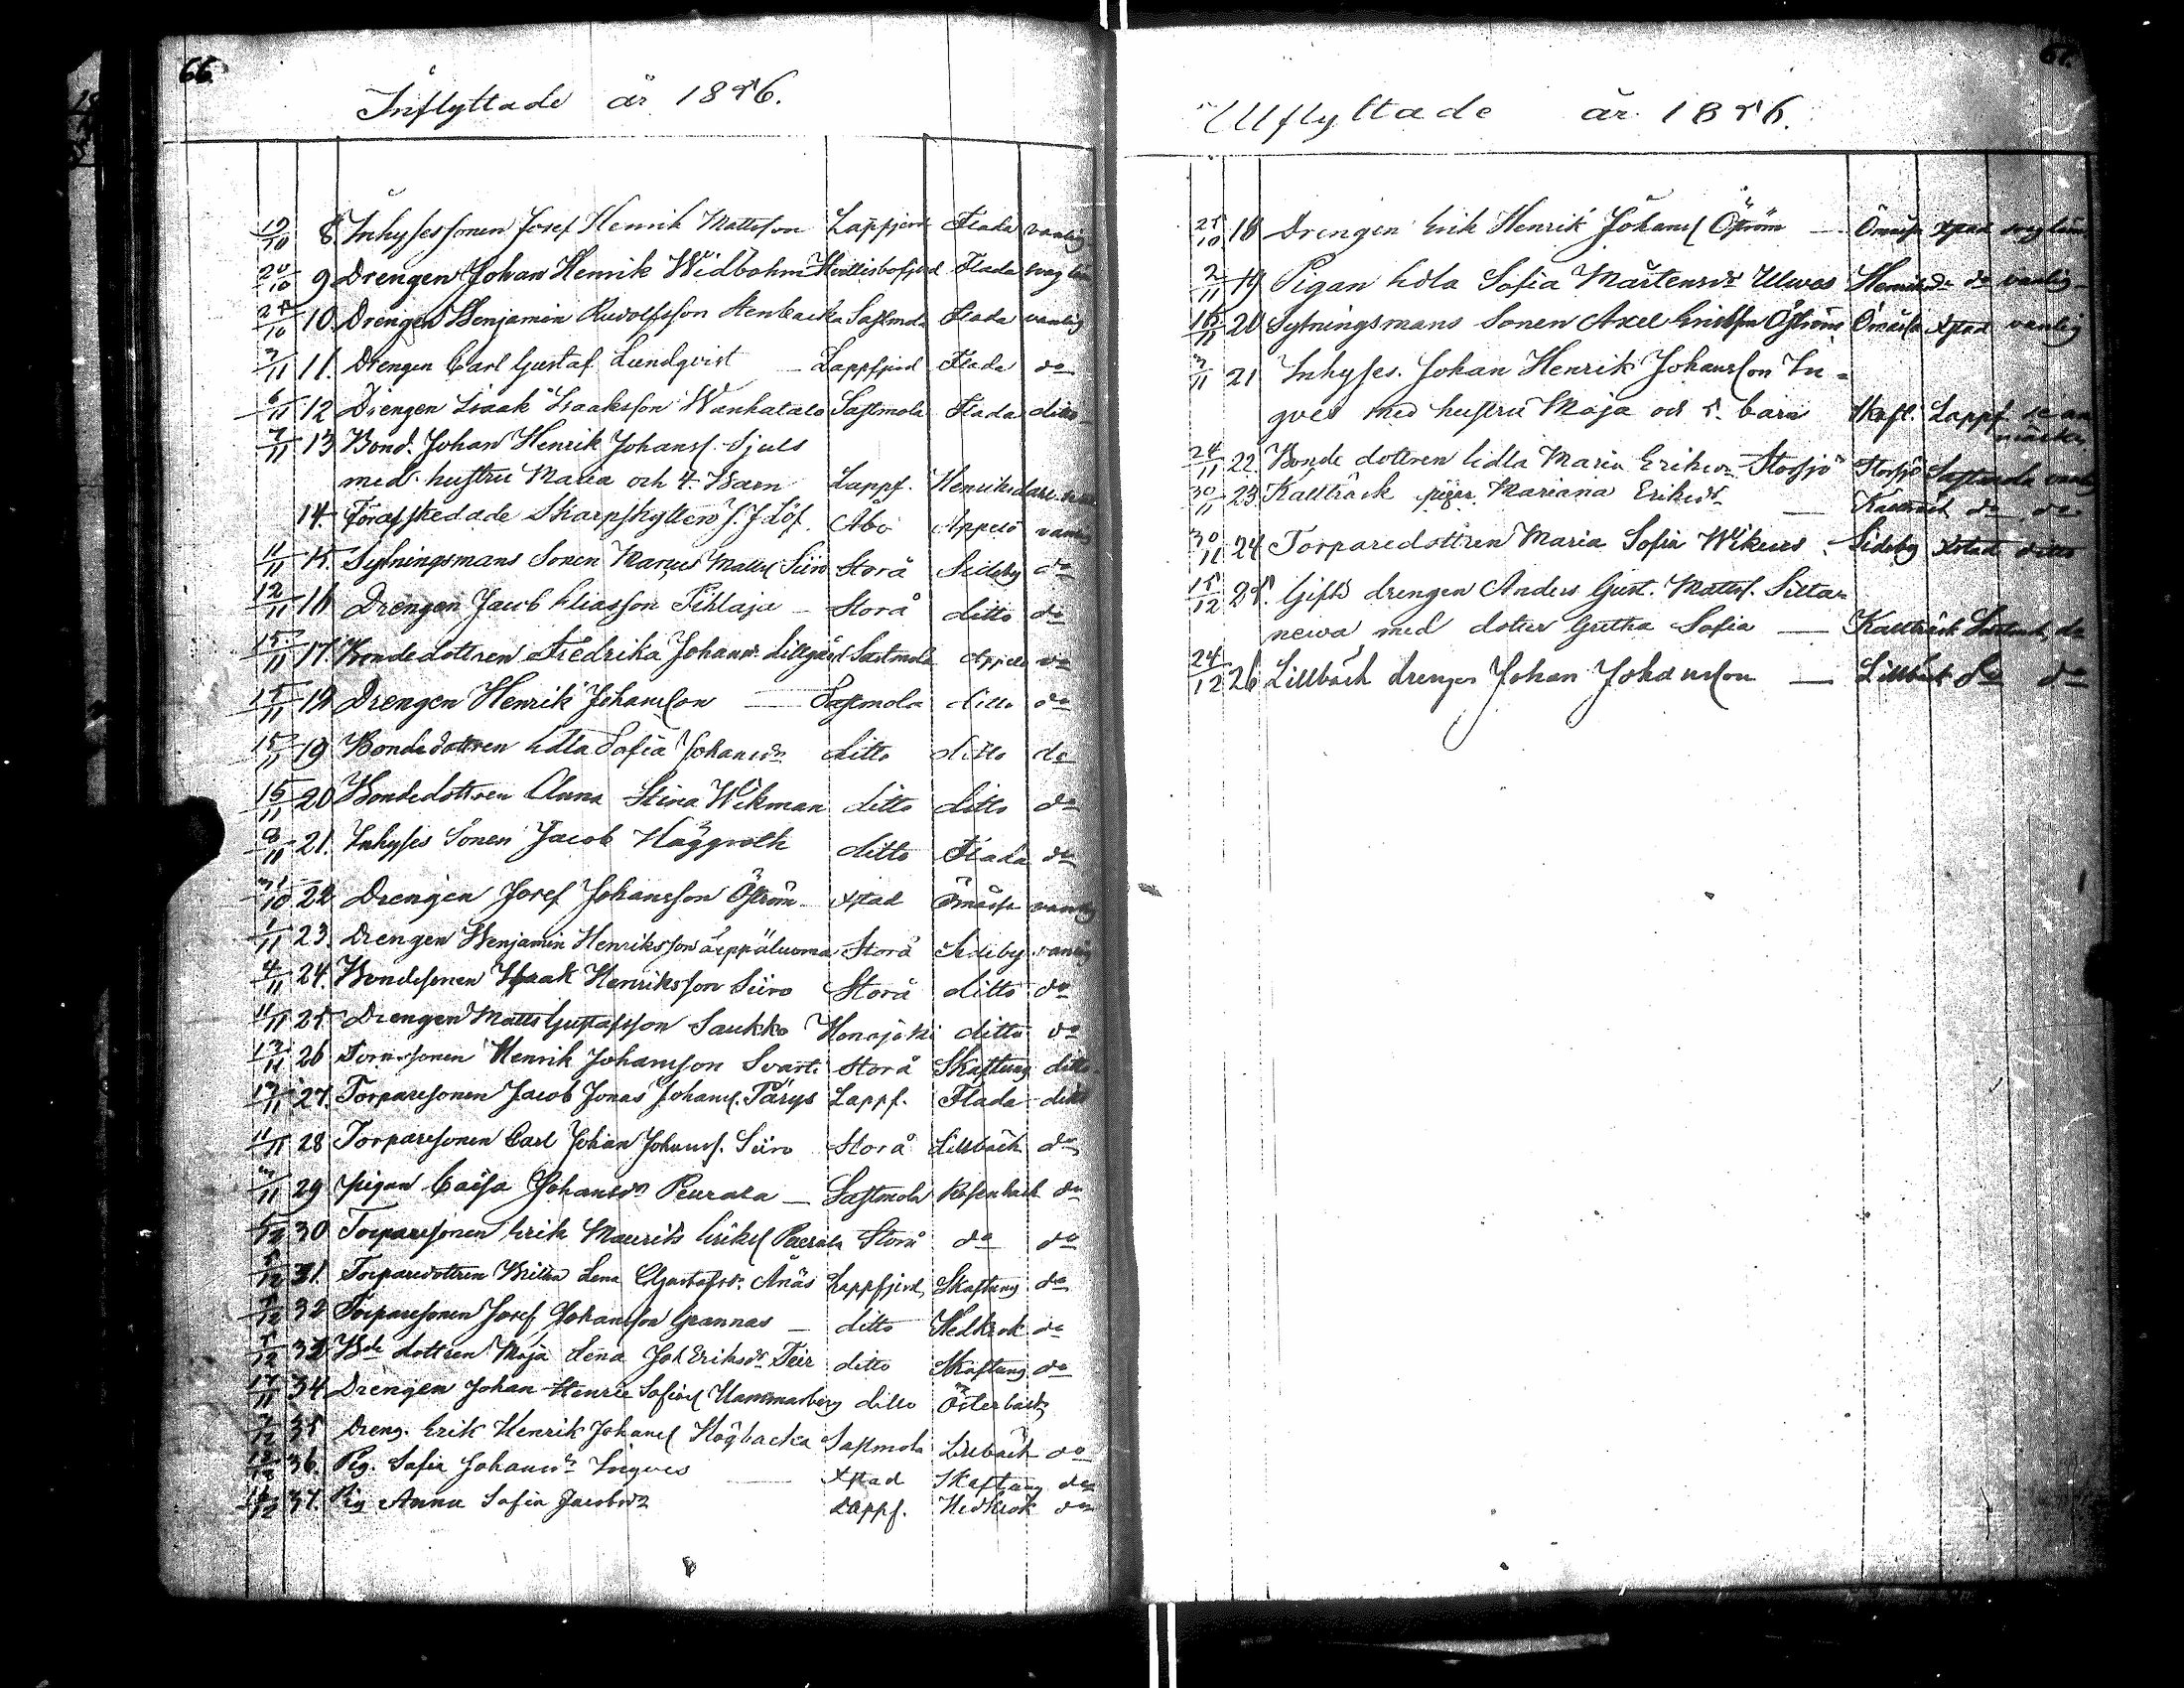 66.
Inflyttade år 1856.
19/10 8 Inhyses sonen Josef Henrik Mattsson Lappfjerd Flada vanlig
20/10 9 Drengen Johan Henrik Widbohm Flada
25/10 10. Drengen Benjamin Rudolfsson Stenbacka Sastmola Flada vanlig
3/11 11. Drengen Carl Gustaf Lundqvist — Lappfjerd Flada do
6/11 12 Drengen Isaak Isaaksson Wanhatalo Sastmola Flada ditto
7/11 13 Bond. Johan Henrik Johanss. Sjuls
med hustru Maria och 4. Barn Lappf. Henriksdal
14. Förafskedade Skarpskytten J. J. Löf. Åbo Appelö vanlig
11/11 15. Sytningsmans Sonen Marcus Matts. Siiro Storå Sideby do
12/11 16 Drengen Jacob Eliasson Pihlaja — Storå ditto do
15/11 17. Bondedottren Fredrika Johansdr Lillgård Sastmola Appelö do
15/11 18 Drengen Henrik Johansson — Sastmola ditto do
15/11 19 Bondedottren Edla Sofia Johansdr ditto ditto do
15/11 20 Bondedottren Anna Stina Wikman ditto ditto do
21. Inhyses Sonen Jacob Häggroth ditto Flada do
31/10 22 Drengen Josef Johansson Öström Xstad Ömossa vanlig
1/11 23. Drengen Benjamin Henriksson Leppäluoma Storå Sideby vanlig
4/11 24. Bondesonen Isaak Henriksson Siiro Storå ditto do
11/11 25. Drengen Matts Gustafsson Saukko Honojoki ditto do
12/11 26 Torp.sonen Henrik Johansson Svarti Storå Skaftung ditto
13/11 27. Torparesonen Jacob Jonas Johanss. Pärus Lappf. Flada ditto
11/11 28 Torparesonen Carl Johan Johanss. Siiro Storå Lillbäck do
29 pigan Caisa Johansdr Peurala — Sastmola Rosenback do
30 Torparesonen Erik Maurits Erikss Peurala Storå do do
31. Torparedottren Britha Lena Gustafsdr. Ånäs Lappfjerd, Skaftung do
32 Torparesonen Josef Johansson Grannas — ditto Hedkrok do
33 Bde dottren Maja Lena Joh Eriksdr Teir ditto Skaftung do
34. Drengen Johan Henric Hammarberg ditto Österback
35 Dreng. Erik Henrik Johanss Högbacka Sastmola Lillbäck do
36. Pig. Sofia Johansdr Ingves — Xstad Skaftung do
37. Pig Anna Sofia Jacobsdr Lappf. Hedkrok do
Utflyttade år 1856.
25/10 18 Drengen Erik Henrik Johanss Öström — Ömossa Xstad
2/11 19 Pigan Edla Sofia Mårtensdr Ulwas do vanlig
20 Sytningsmans Sonen Axel Eriksson Öström Ömossa Xstad vanlig
3/11 21 Inhyses. Johan Henrik Johansson In-
gves med hustru Maja och 5. barn Skaft. Lappf
24/11 22. Bonde dottren Edla Maria Eriksdr Storsjö Storsjö vanlig
30/11 23. Kallträsk pigan Mariana Eriksdr — Kallträsk do do
30/11 24 Torparedottren Maria Sofia Wikars. Sideby Xstad ditto
15/12 25. Gifte drengen Anders Gust. Mattss. Silta-
newa med dotter Gretha Sofia — Kallträsk do
24/12 26 Lillbäck drengen Johan Johansson — Lillbäck do do